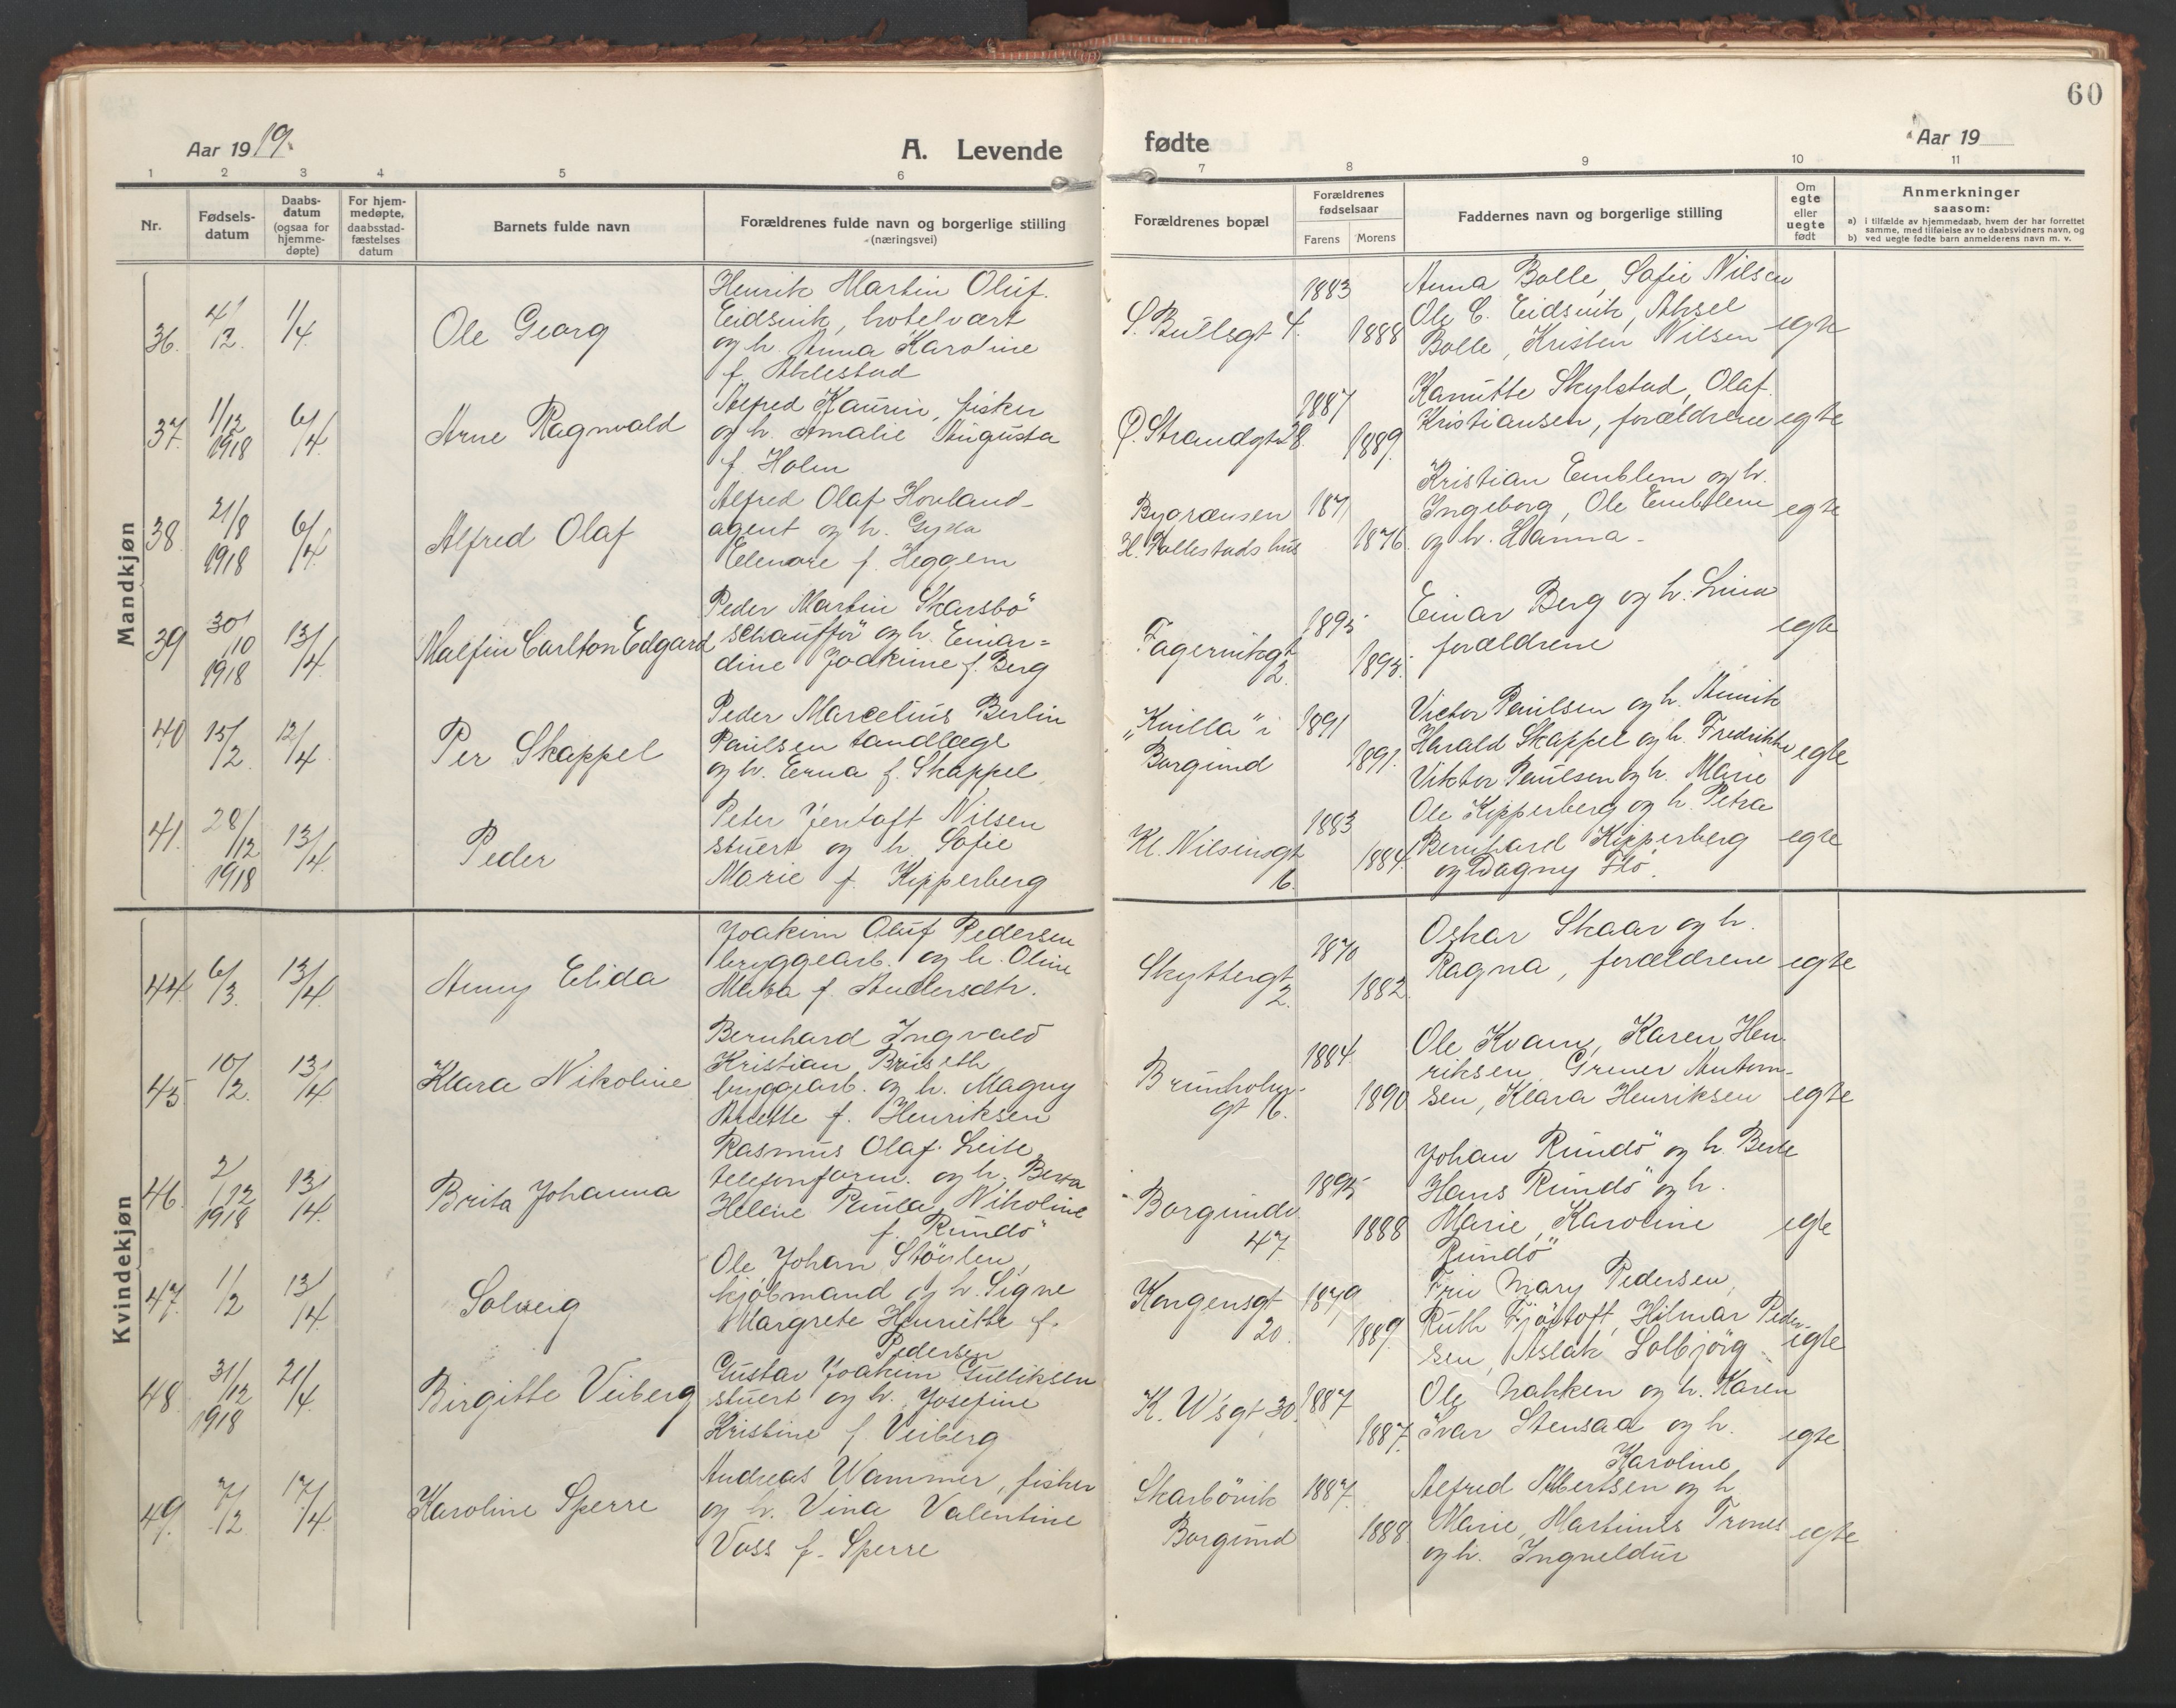 60
Aar 1919.
A. Levende
fødte
Aar 19
1 2 3 4 5 6
7 8 9 10 11
Nr.
Fødsels-
datum
Daabs-
datum
(ogsaa for
hjemme-
døpte)
For hjem-
medøpte,
daabsstad-
fæstelses
datum
Barnets fulde navn
Forældrenes fulde navn og borgerlige stilling
(næringsvei)
Forældrenes bopæl
Forældrenes
fødselsaar
Farens
Morens
Faddernes navn og borgerlige stilling
Om
egte
eller
uegte
født
Anmerkninger
saasom:
a) i tilfælde av hjemmedaab, hvem der har forrettet
samme, med tilføielse av to daabsvidners navn, og
b) ved uegte fødte barn anmelderens navn m. v.
Mandkjøn
36. 4/2. 1/4 Ole Georg
Henrik Martin Oluf
Eidsvik, hotelvært
og h. Anna Karoline
f. Aklestad
S. Bullsgt 4. 1883 1888
Anna Bolle, Sofie Nilsen
Ole C. Eidsvik, Aksel
Bolle, Kristen Nilsen
egte
37. 1/12 1918 6/4. Arne Ragnvald
Alfred Kaurin, fisker
og h. Amalie Augusta
f. Holm
Ø. Strandgt 28. 1887 1889.
Kanutte Skylstad, Olaf
Kristiansen, forældrene
egte
38 21/8 1918 6/4. Alfred Olaf
Alfred Olaf Hovland
agent og h. Gyda
Elenore f. Heggem
Bygrænsen
H. Tollestads hus
1871 1876.
Kristian Emblem og h.
Ingeborg, Ole Emblem
og h. Hanna
egte
39 30/10 1918 13/4 Malfin Carlton Edgard
Peder Martin Skarsbö
schauffør og h. Einar-
dine Joakime f. Berg
Fagervikgt
2.
1895 1895.
Einar Berg og h. Lina
forældrene
egte
40 15/2. 12/4 Per Skappel
Peder Marcelius Berlin
Paulsen tandlæge
og h. Erna f. Skappel
"Kvilla" i
Borgund
1891 1891.
Victor Paulsen og h.
Harald Skappel og h. Fredrikke
Viktor Paulsen og h. Marie
egte
41. 28/12 1918 13/4. Peder
Peter Jentoft Nilsen
stuert og h. Sofie
Marie f. Kipperberg
Kl. Nilsensgt
16.
1883 1884.
Ole Kipperberg og h. Petra
Bernhard Kipperberg
og Dagny Flö.
egte
Kvindekjøn
44. 6/3. 13/4. Anny Elida
Joakim Oluf Pedersen
bryggearb. og h. Oline
f. Andersdtr.
Skyttergt
2.
1870 1882.
Oskar Skaar og h.
Ragna, forældrene
egte
45 10/2. 13/4. Klara Nikoline
Bernhard Ingvald
Kristian Briseth
bryggearb. og h. Magny
f. Henriksen
Brunholm-
gt 16.
1884. 1890
Ole Kvam, Karen Hen
riksen, Antom-
sen, Klara Henriksen
egte
46. 2/12 1918 13/4. Brita Johanna
Rasmus Olaf Leite
telefonform. og h. Bera
Helene Paula Nikoline
f. Rundö
Borgundv
47
1895 1888
Johan Rundö og h. Berte
Hans Rundö og h.
Marie, Karoline
Rundö
egte
47. 1/2 13/4. Solveig
Ole Johan Stöylen,
kjøbmand og h. Signe
Margrete Henriette f.
Pedersen
Kongensgt
20.
1879 1889.
Mary Pedersen,
Ruth Fjörtoft, Hilmar Peder-
sen, Aslak Solbjörg
egte
48. 31/12 1918 21/4. Birgitte Veiberg
Gustav Joakim Gulliksen
stuert og h. Josefine
Kristine f. Veiberg
K. W's gt 30. 1887 1887.
Ole Nakken og h. Karen
Ivar Stensaa og h.
Karoline
egte
49. 7/2 17/4. Karoline Sperre
Andreas Wammer, fisker
og h. Vina Valentine
Voss f. Sperre
Skarbövik
Borgund
1887. 1888.
Alfred Albertsen og h.
Marie, Martinus Trones
og h. Ingveldur
egte